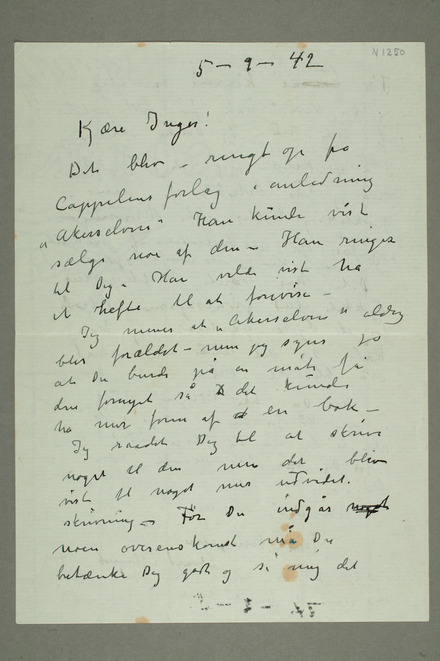 N 1250
5 - 9 - 42
Kjære Inger!
Det blev - ringt op fra
Cappelens forlag i anledning
"Akerselven" Han kunde vist
sælge noe af den - Han ringer
til Dig - Han vilde vist ha
et hefte til at forevise -
Jeg mener at "Akerselven" aldrig
blir forældet - men jeg synes jo
at Du burde på en måte få
den fornyet så det kunde
ha mer form af en bok -
Jeg raadet Dig til at skrive
noget til den men det blev
vist til noget mer utvidet.
skrivning - Før Du indgår
noen overenskomst må Du
betænke Dig godt og si mig det